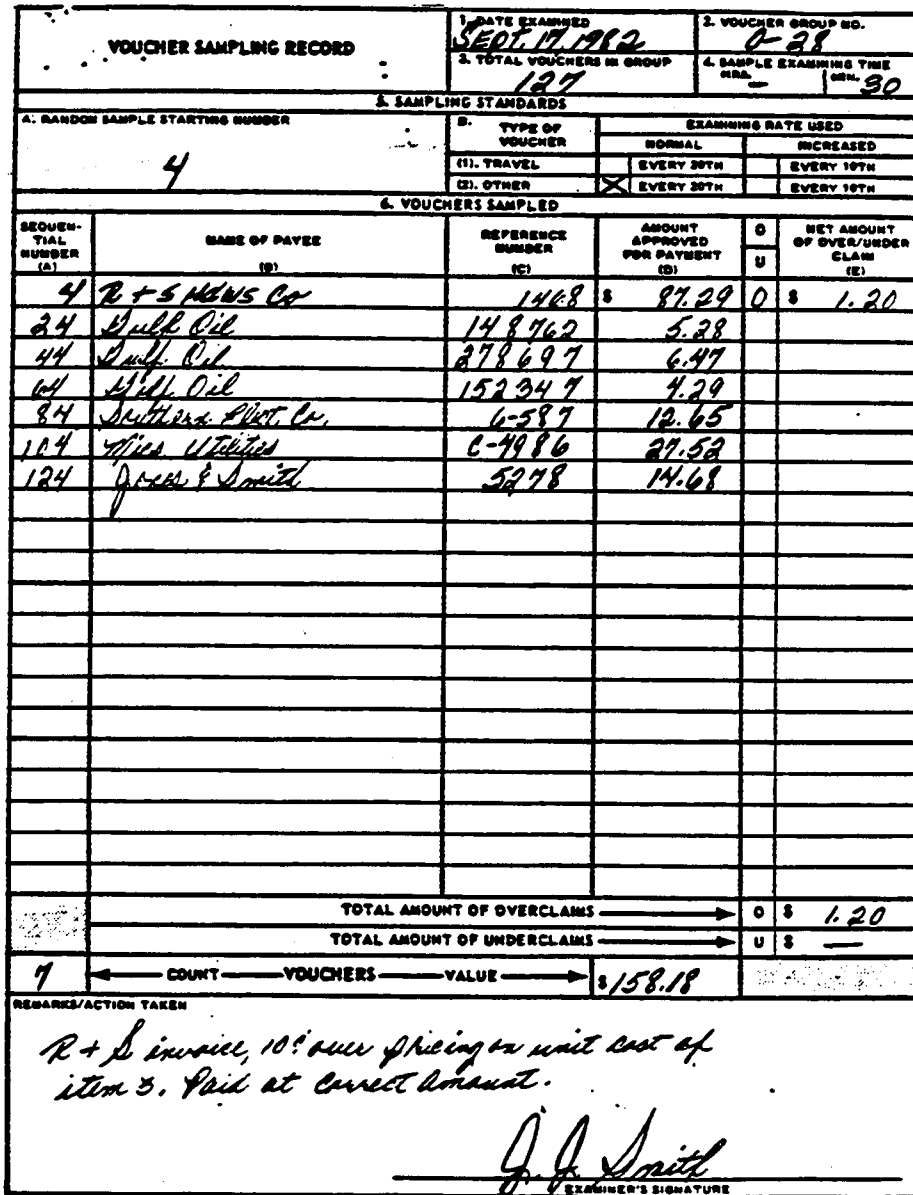 VOUCHER SAMPLING RECORD
1. DATE EXAMINED
SEPT. 17, 1982
2. VOUCHER GROUP NO.
0-28
3. TOTAL VOUCHERS IN GROUP
127
4. SAMPLE EXAMINING TIME
HRS. — MIN. 30
5. SAMPLING STANDARDS
A. RANDOM SAMPLE STARTING NUMBER
4
B. TYPE OF VOUCHER
EXAMINING RATE USED
NORMAL INCREASED
(1). TRAVEL EVERY 20TH EVERY 10TH
(2). OTHER X EVERY 20TH EVERY 10TH
6. VOUCHERS SAMPLED
SEQUEN-
TIAL
NUMBER
(A)
NAME OF PAYEE
(B)
REFERENCE
NUMBER
(C)
AMOUNT
APPROVED
FOR PAYMENT
(D)
O
U
NET AMOUNT
OF OVER/UNDER
CLAIM
(E)
4 R + S Co 1468 $ 87.29 O $ 1.20
24 Gulf Oil 148762 5.28
44 Gulf Oil 278697 6.47
64 Gulf Oil 152347 4.29
84 Southern Co. 6-587 12.65
104 Utilities C-4986 27.52
124 Jones & Smith 5278 14.68
TOTAL AMOUNT OF OVERCLAIMS O $ 1.20
TOTAL AMOUNT OF UNDERCLAIMS U $ —
7 COUNT VOUCHERS VALUE $158.18
REMARKS/ACTION TAKEN
R + S invoice, 10¢ over pricing on unit cost of
item 3. Paid at correct amount.
J. J. Smith
EXAMINER'S SIGNATURE